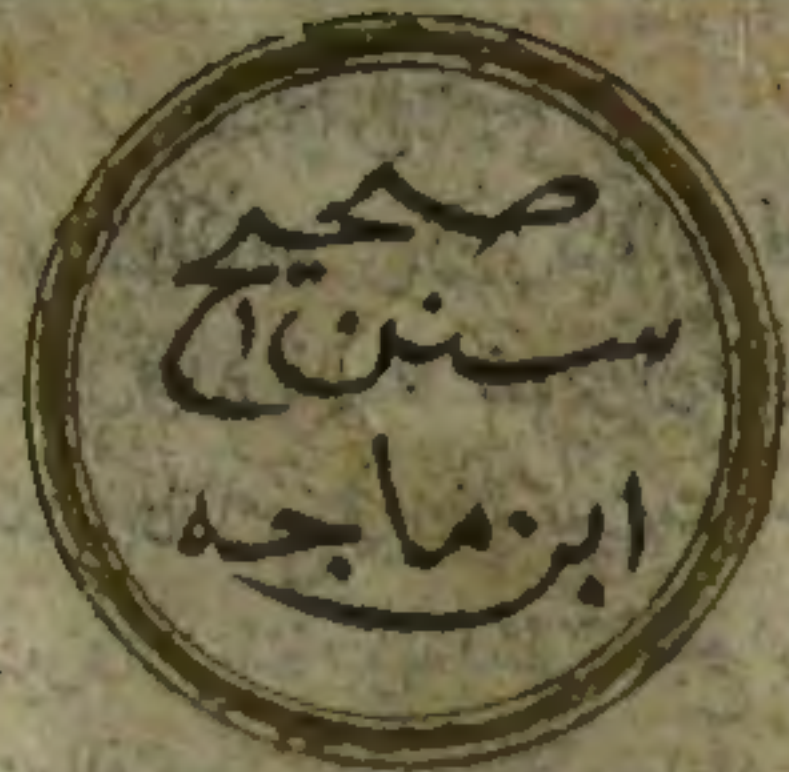 صحيح
سنن ا
ابن ماجه